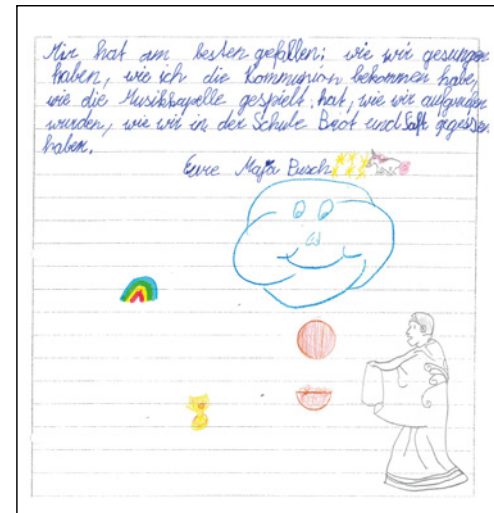 Mir hat am besten gefallen: wie wir gesungen
haben, wie ich die Kommunion bekommen habe,
wie die Musikkapelle gespielt hat, wie wir aufgerufen
wurden, wie wir in der Schule Brot und Saft gegessen
haben.
Eure Busch